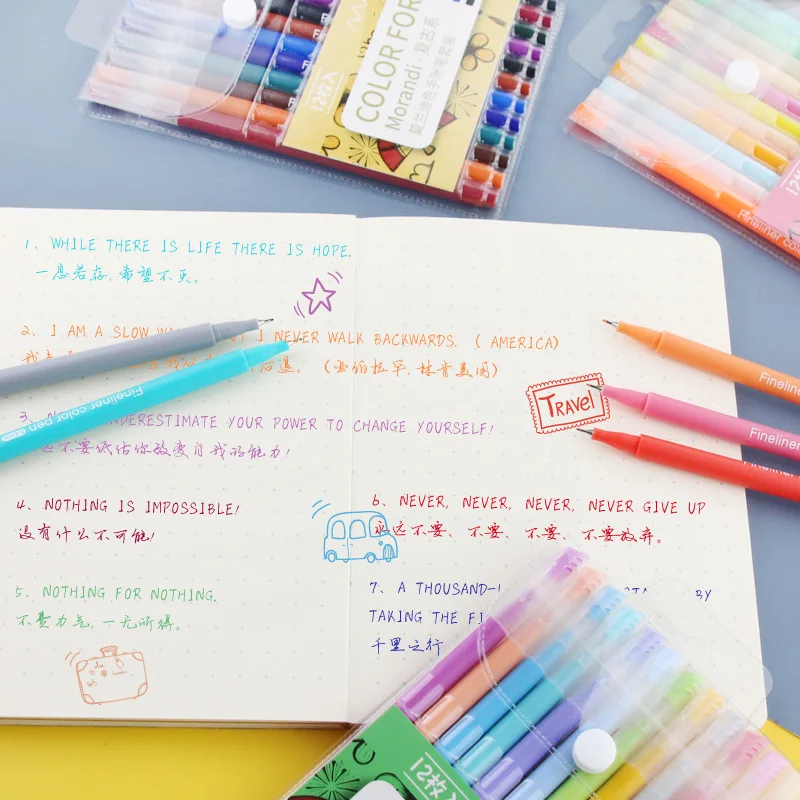 COLOR FOR
Morandi · 复古系
莫兰迪色手账笔套装
12枚入
1、WHILE THERE IS LIFE THERE IS HOPE.
一息若存,希望不灭。
2、I AM A SLOW I NEVER WALK BACKWARDS. ( AMERICA)
后退。(亚伯拉罕.林肯美国)
Fineliner color pen
Fineliner
TRAVEL
Fineliner
Fineliner
3、UNDERESTIMATE YOUR POWER TO CHANGE YOURSELF!
不要低估你改变自我的能力!
4、NOTHING IS IMPOSSIBLE!
没有什么不可能!
5、NOTHING FOR NOTHING.
不费力气,一无所得。
6、NEVER, NEVER, NEVER, NEVER GIVE UP
永远不要、不要、不要、不要放弃。
7、A THOUSAND- BY
TAKING THE
千里之行
12枚入